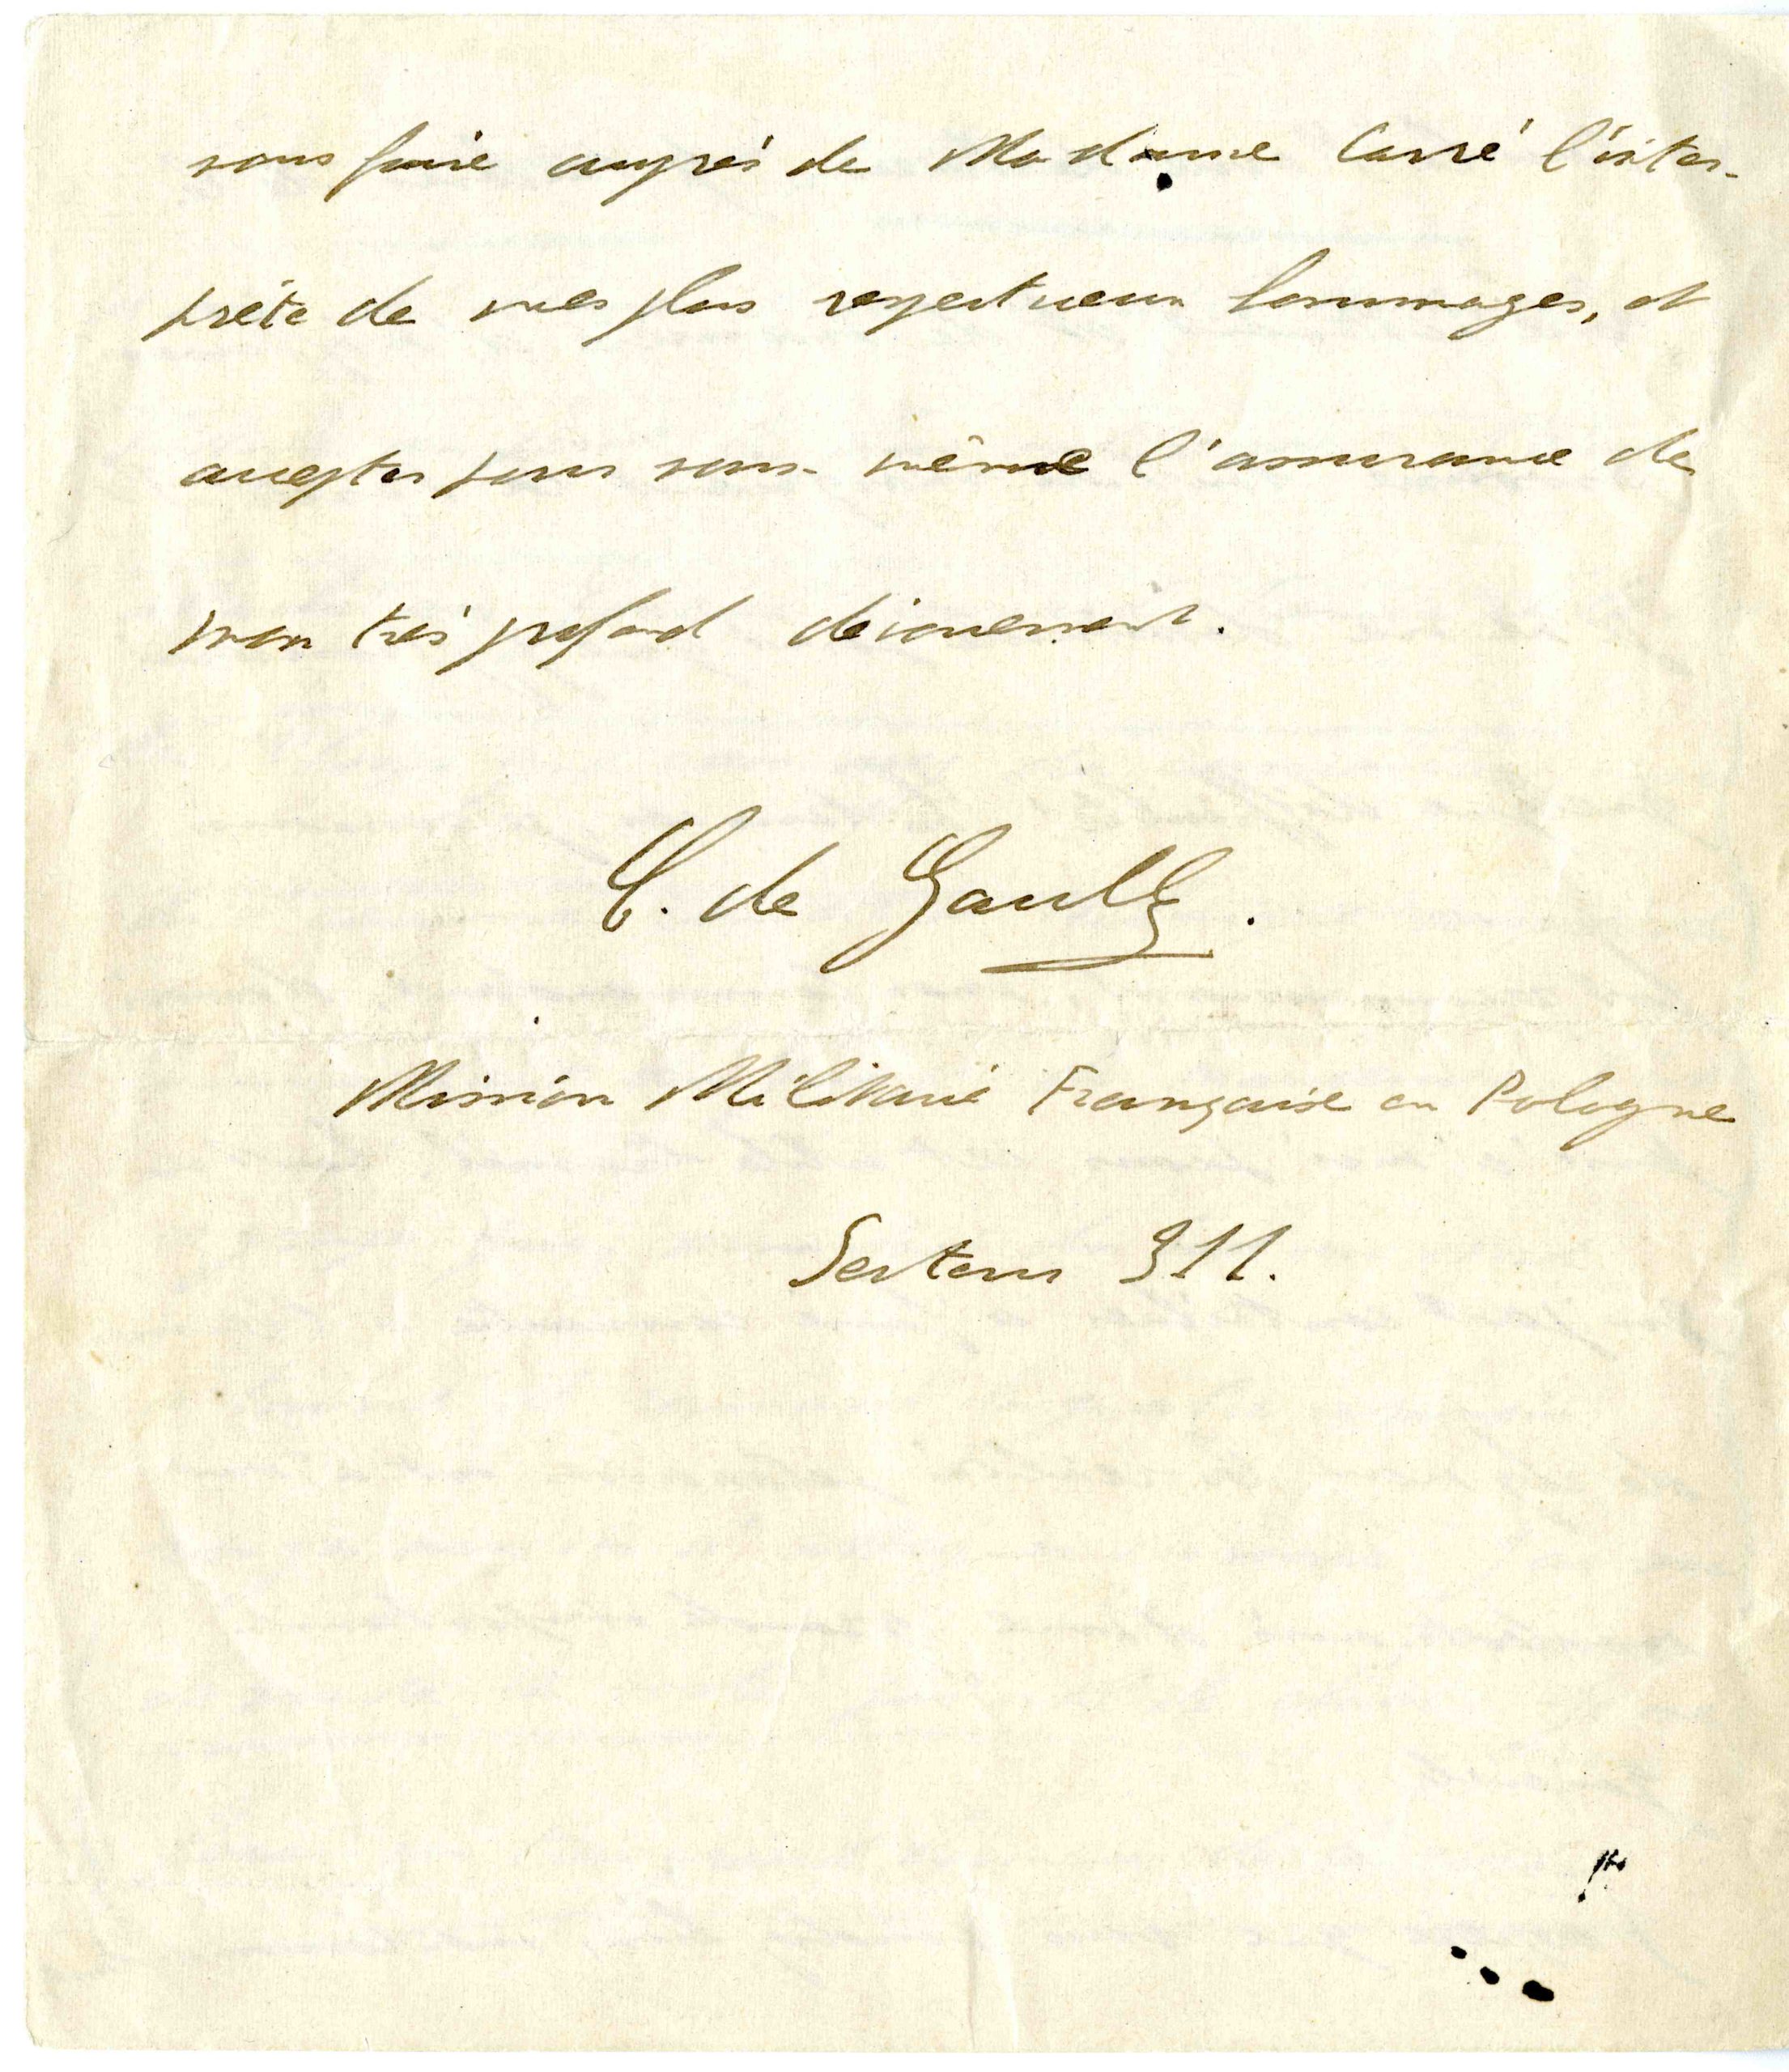 vous faire auprès de Madame Carré l'inter-
prète de mes plus respectueux hommages, et
accepter pour vous-même l'assurance de
mon très profond dévouement.
C. de Gaulle.
Mission Militaire Française en Pologne
Secteur 311.